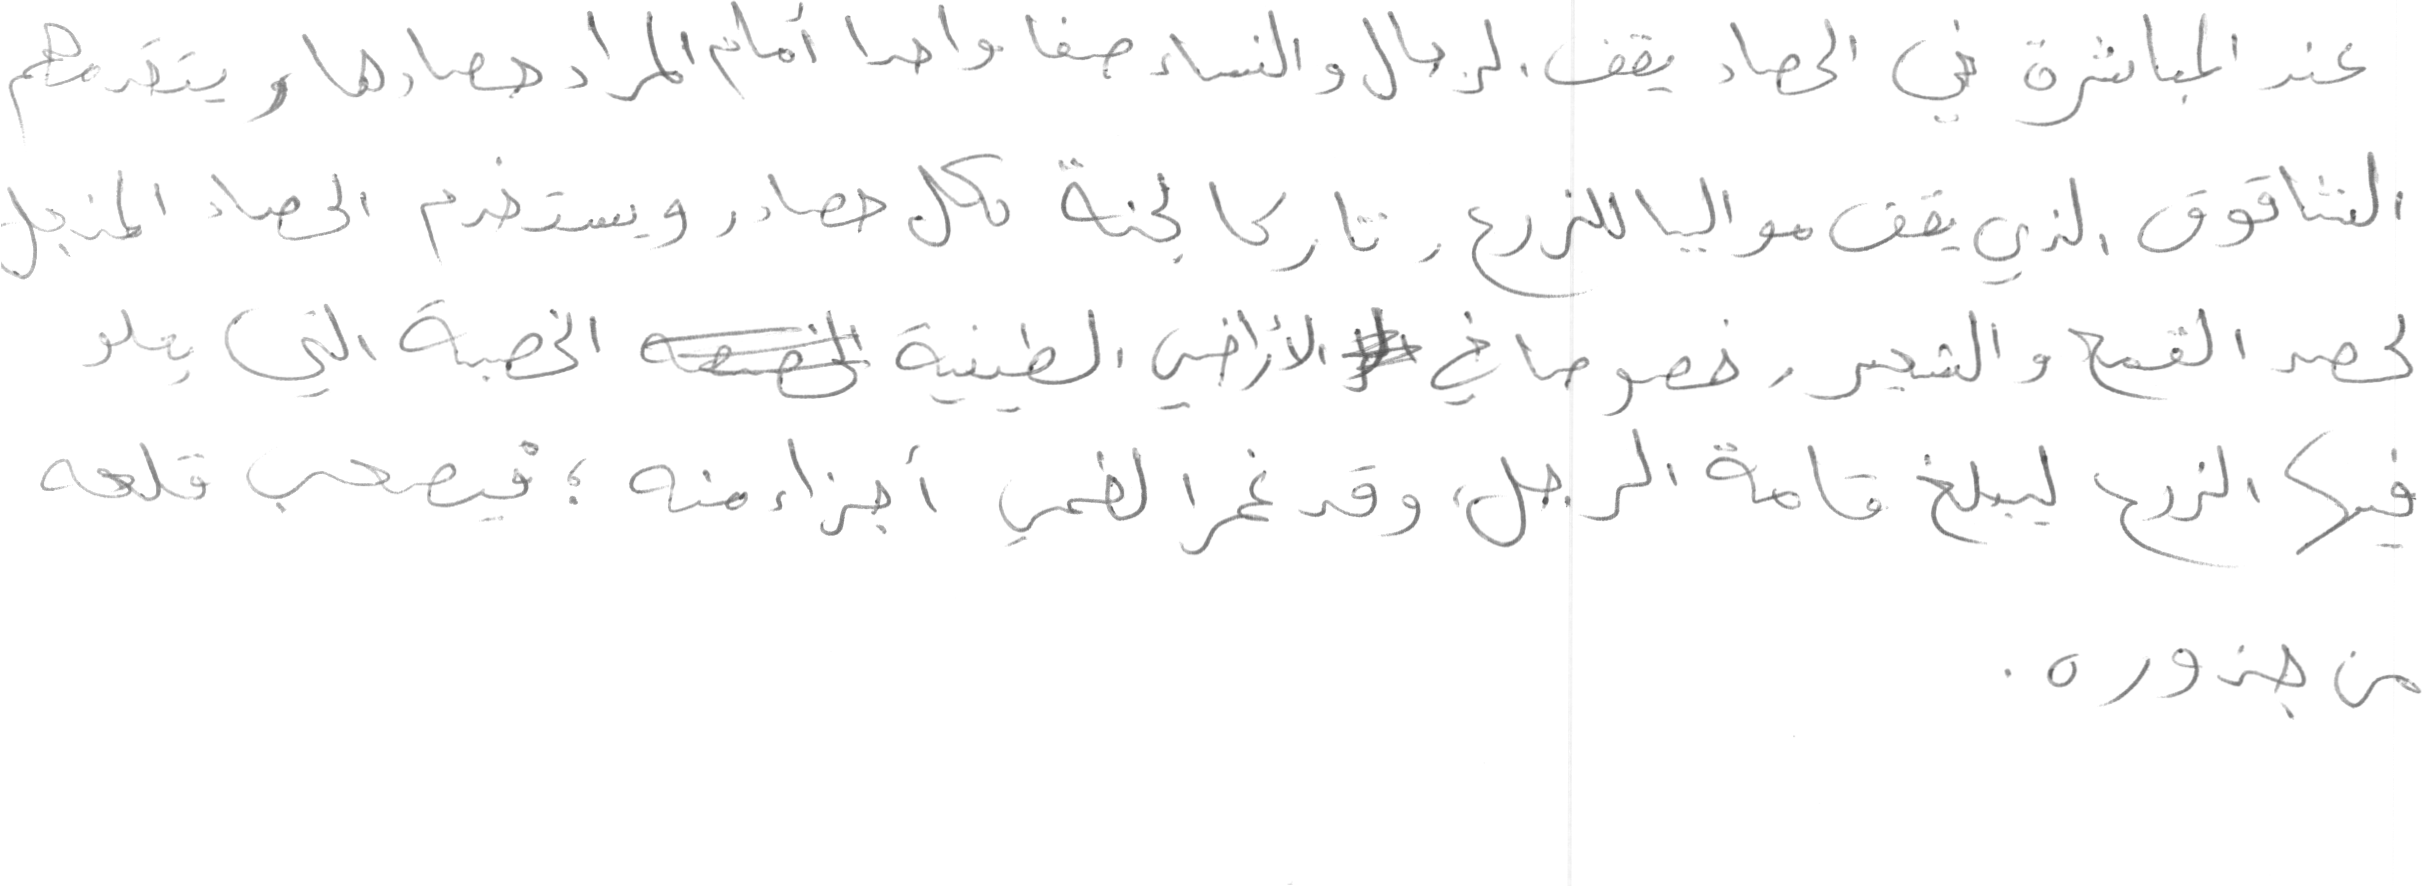 عند المباشرة في الحصاد يقف الرجال والنساء صفا واحدا أمام المراد حصادها ويتقدمهم
الشاقوق الذي يقف مواليا للزرع، تاركا لجنة لكل حصاد، ويستخدم الحصاد المنجل
لحصد القمح والشعير، خصوصا في الأراضي الطينية الخصبة التي يعلو
فيها الزرع ليبلغ قامة الرجل، وقد غمر الطمي أجزاء منه؛ فيصعب قلعه
من جذوره.